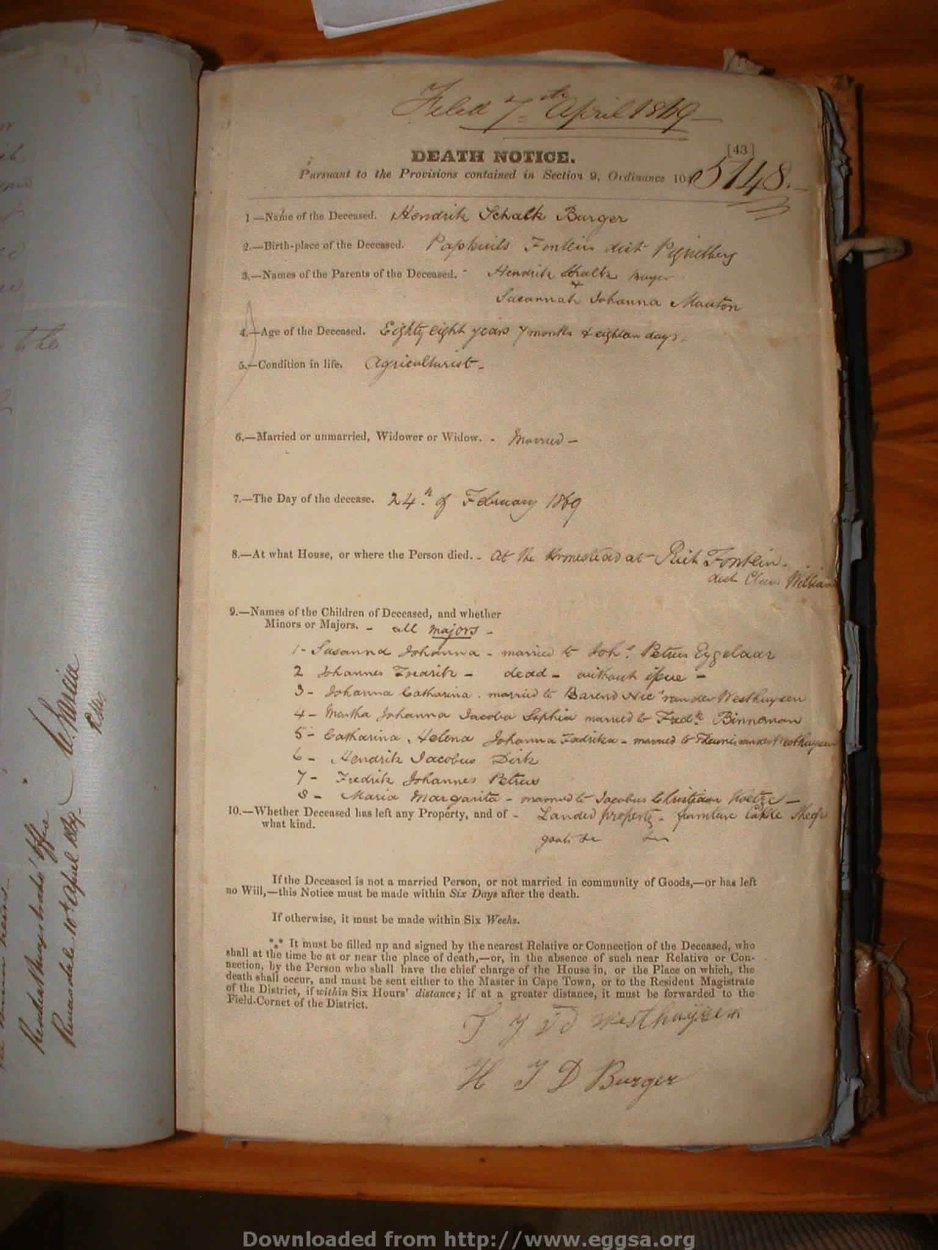 Filed 7th April 1869
DEATH NOTICE.
[43]
Pursuant to the Provisions contained in Section 9, Ordinance 104
5748.
1—Name of the Deceased. Hendrik Schalk Burger
2.—Birth-place of the Deceased. Fontein dist Piquetberg
3.—Names of the Parents of the Deceased. Hendrik Schalk Burger
&
Susannah Johanna Mauton
4.—Age of the Deceased. Eighty eight years 7 months & eighteen days.
5.—Condition in life. Agriculturist-
6.—Married or unmarried, Widower or Widow. - Married -
7.—The Day of the decease. 24th of February 1869
8.—At what House, or where the Person died. - At the Homestead at Riet Fontein.
dist Clan William
9.—Names of the Children of Deceased, and whether
Minors or Majors. - all majors -
1- Susanna Johanna - married to Johs. Petrus Eygelaar
2 Johannes Fredrik - dead - without issue -
3- Johanna Catharina. married to Barend Nics van der Westhuysen
4- Martha Johanna Jacoba Sophia married to Fredk Binneman
5- Catharina Helena Johanna Fadrika - married to van der Westhuysen
6- Hendrik Jacobus Dirk
7- Fredrik Johannes Petrus
8- Maria Margarita - married to Jacobus Christiaan Koetze -
10.—Whether Deceased has left any Property, and of - Landed property - furniture cattle Sheep
what kind. goats &c &c
If the Deceased is not a married Person, or not married in community of Goods,—or has left
no Will,—this Notice must be made within Six Days after the death.
If otherwise, it must be made within Six Weeks.
*** It must be filled up and signed by the nearest Relative or Connection of the Deceased, who
shall at the time be at or near the place of death,—or, in the absence of such near Relative or Con-
nection, by the Person who shall have the chief charge of the House in, or the Place on which, the
death shall occur, and must be sent either to the Master in Cape Town, or to the Resident Magistrate
of the District, if within Six Hours' distance; if at a greater distance, it must be forwarded to the
Field-Cornet of the District.
Westhuyzen
H J D Burger
Resident Magistrate's Office
10th April 1869
Downloaded from http://www.eggsa.org